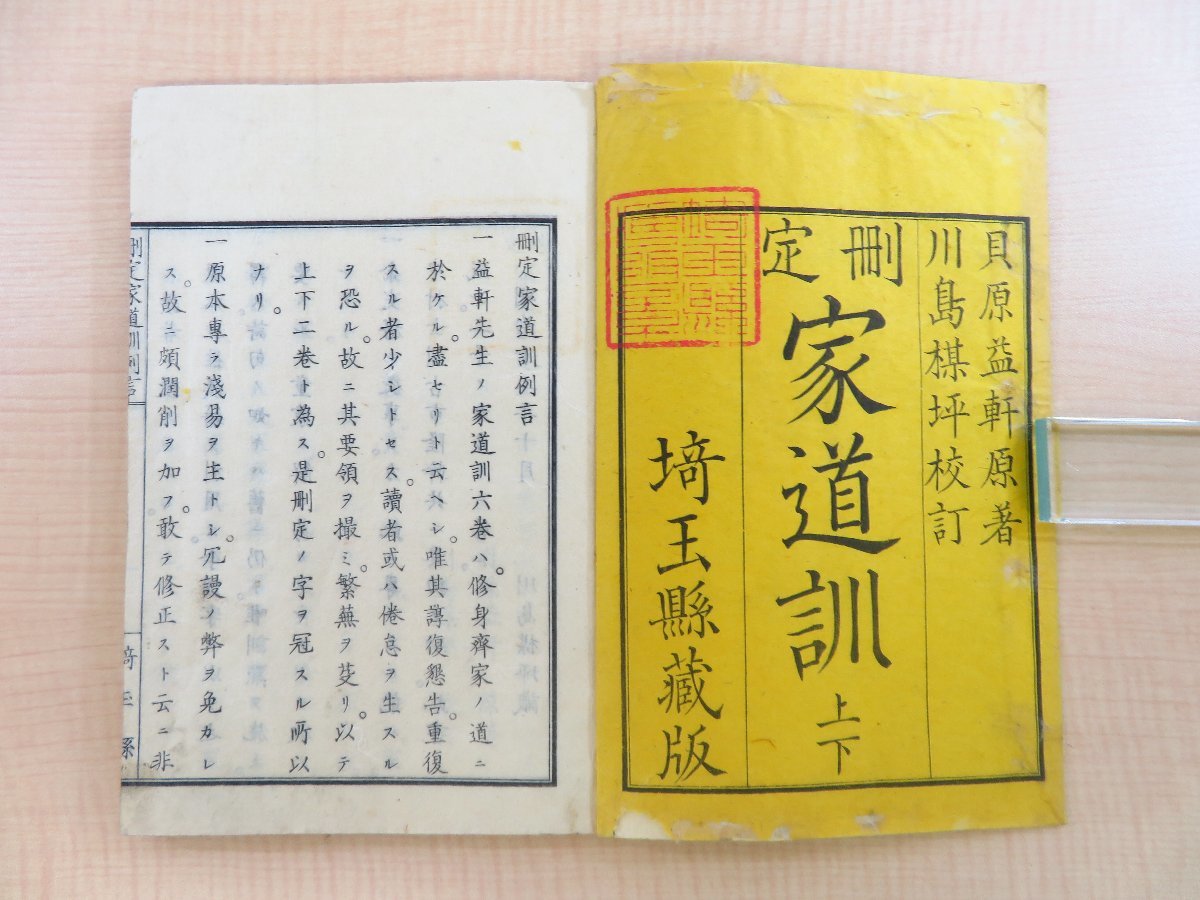 貝原益軒原著
川島楳坪校訂
刪定
家道訓 上下
埼玉縣藏版
刪定家道訓例言
一益軒先生ノ家道訓六卷ハ。修身齊家ノ道ニ
於ケル。盡セリト云ヘシ。唯其諄復懇告。重復
スル者少シトセス。讀者或ハ倦怠ヲ生スル
ヲ恐ル。故ニ其要領ヲ撮ミ。繁蕪ヲ芟リ。以テ
上下二卷ト為ス。是刪定ノ字ヲ冠スル所以
ナリ。
一原本專ラ淺易ヲ主トシ。冗謾ノ弊ヲ免カレ
ス。故ニ頗潤削ヲ加フ。敢テ修正スト云ニ非
刪定家道訓例言
埼玉縣